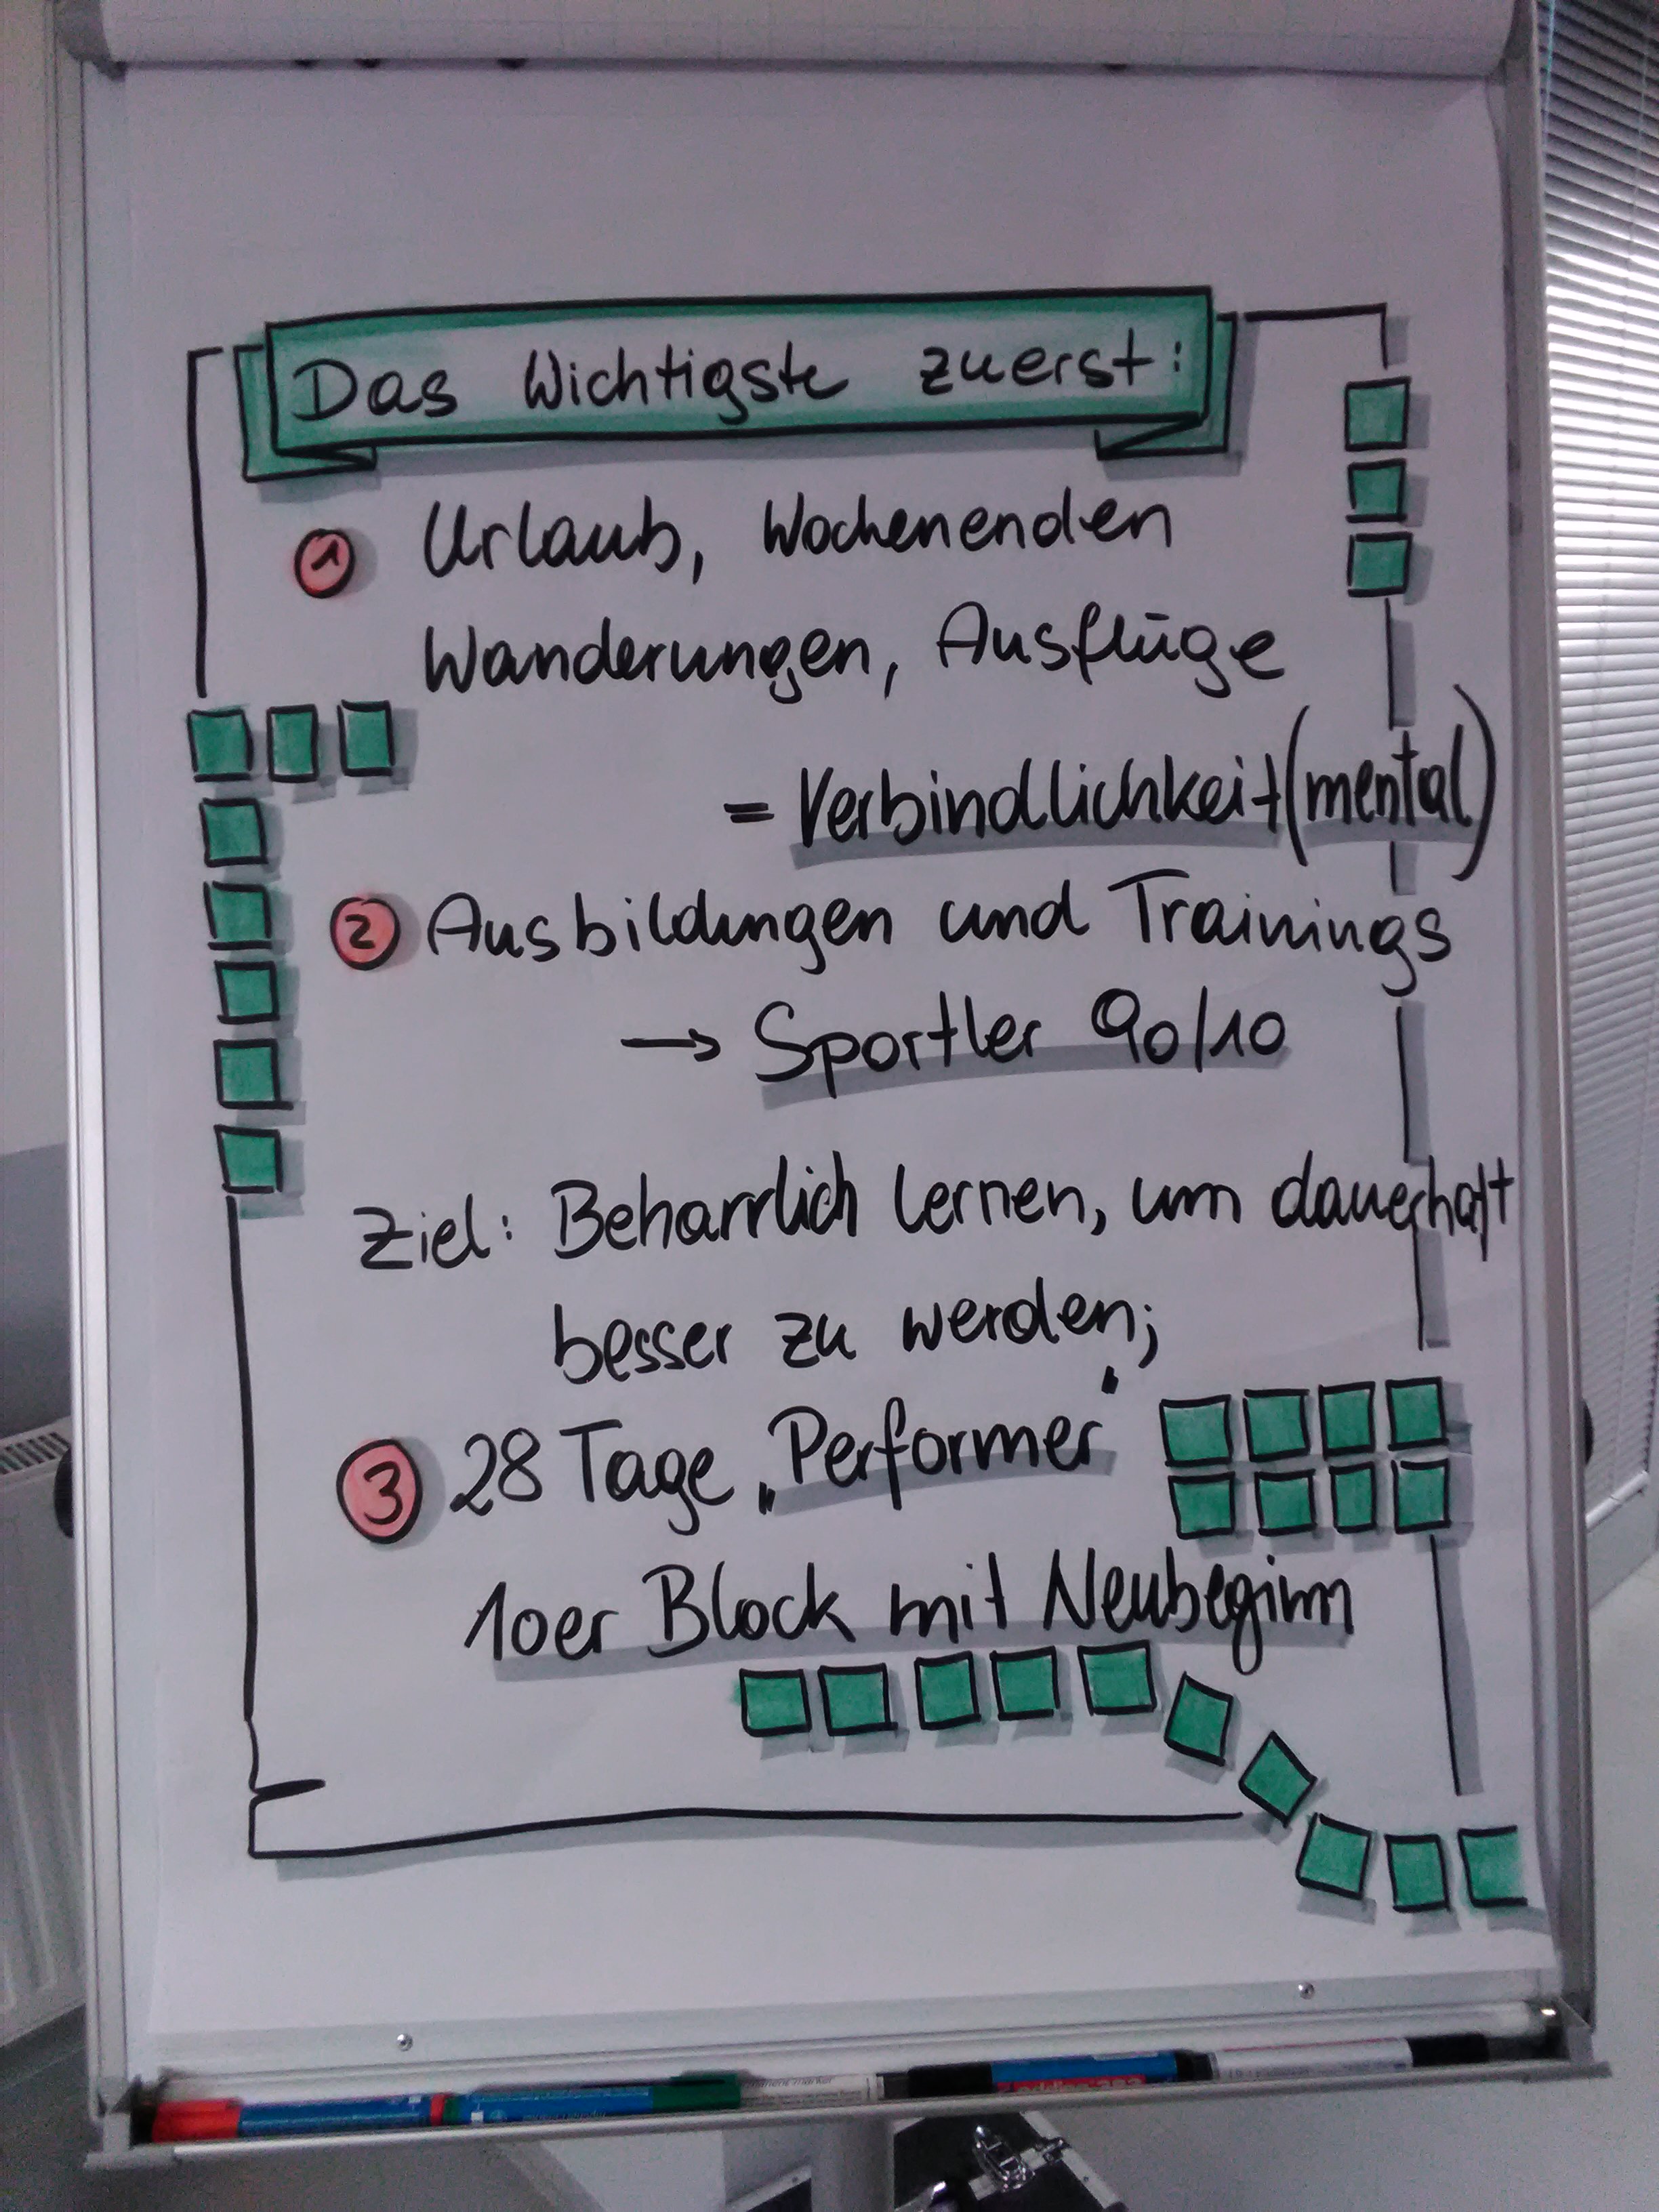 Das Wichtigste zuerst:
1 Urlaub, Wochenenden
Wanderungen, Ausflüge
= Verbindlichkeit (mental)
2 Ausbildungen und Trainings
→ Sportler 90/10
Ziel: Beharrlich lernen, um dauerhaft
besser zu werden;
3 28 Tage „Performer“
10er Block mit Neubeginn